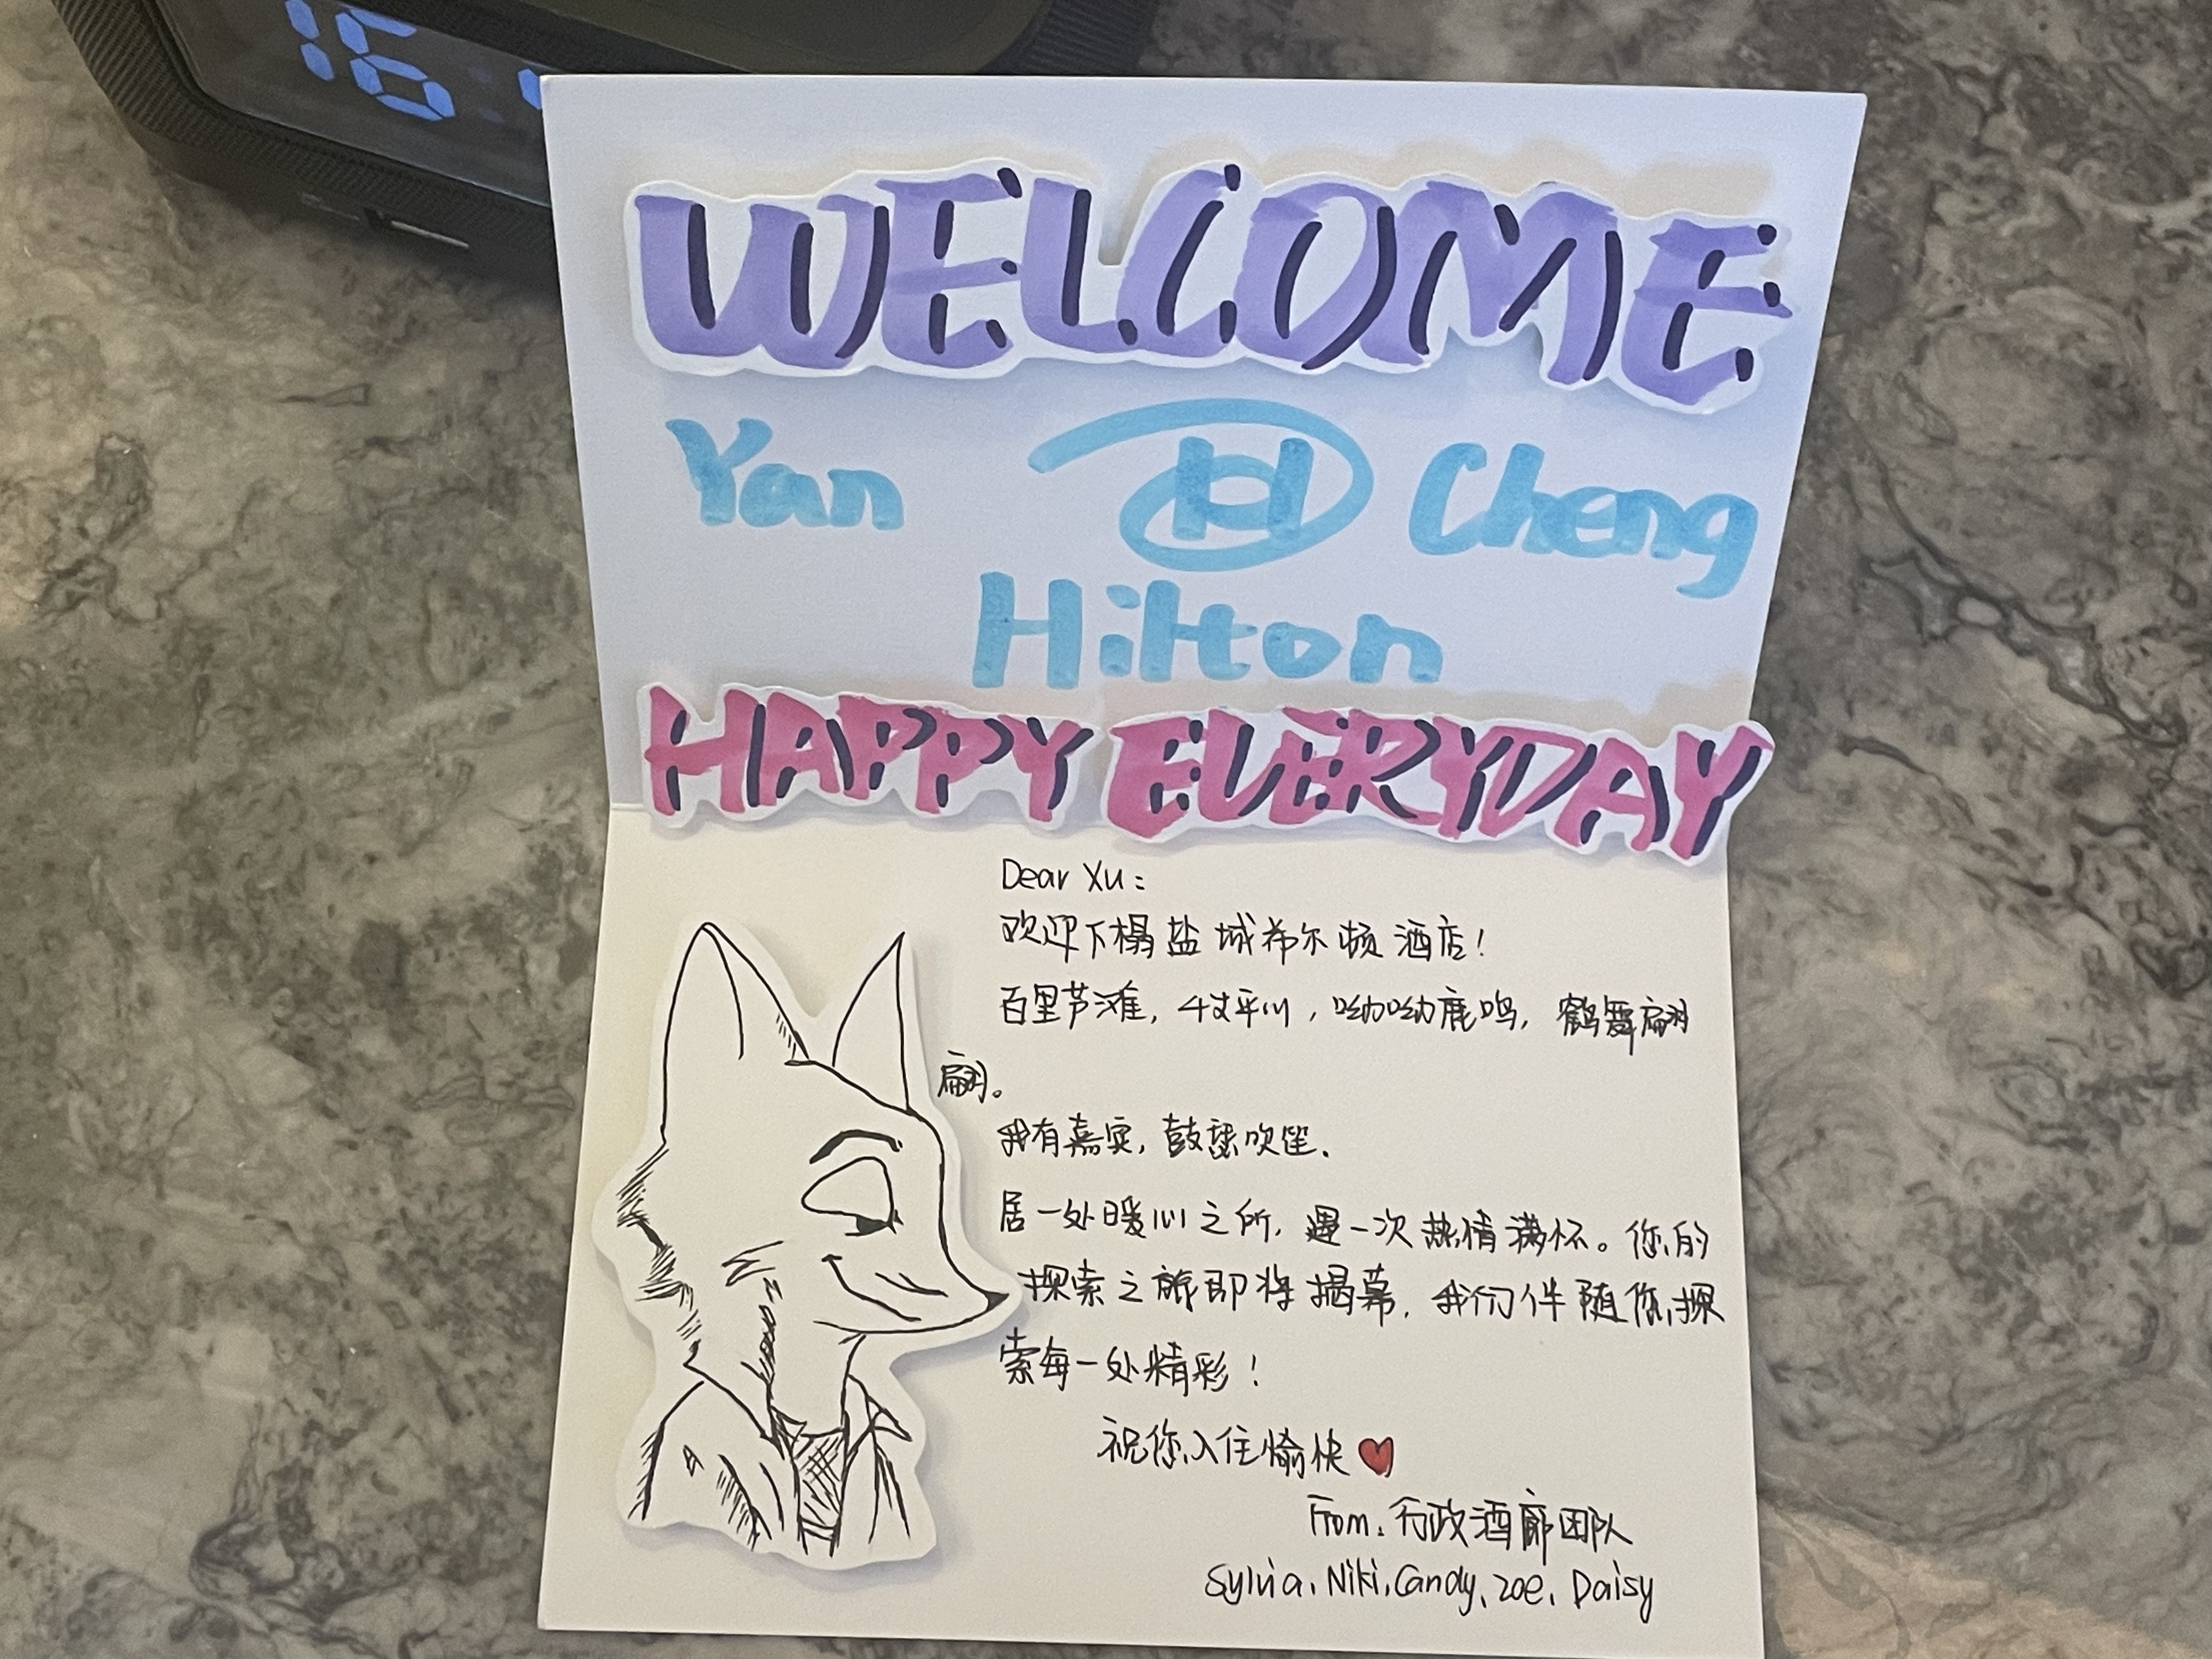 16
WELCOME
Yan H Cheng
Hilton
HAPPY EVERYDAY
Dear Xu:
欢迎下榻盐城希尔顿酒店！
百里芦滩，千丈平川，呦呦鹿鸣，鹤舞翩
翩。
我有嘉宾，鼓瑟吹笙．
居一处暖心之所，遇一次热情满怀。你的
探索之旅即将揭幕，我们伴随你探
索每一处精彩！
祝你入住愉快
From：行政酒廊团队
Sylvia、Niki、Candy、zoe、Daisy